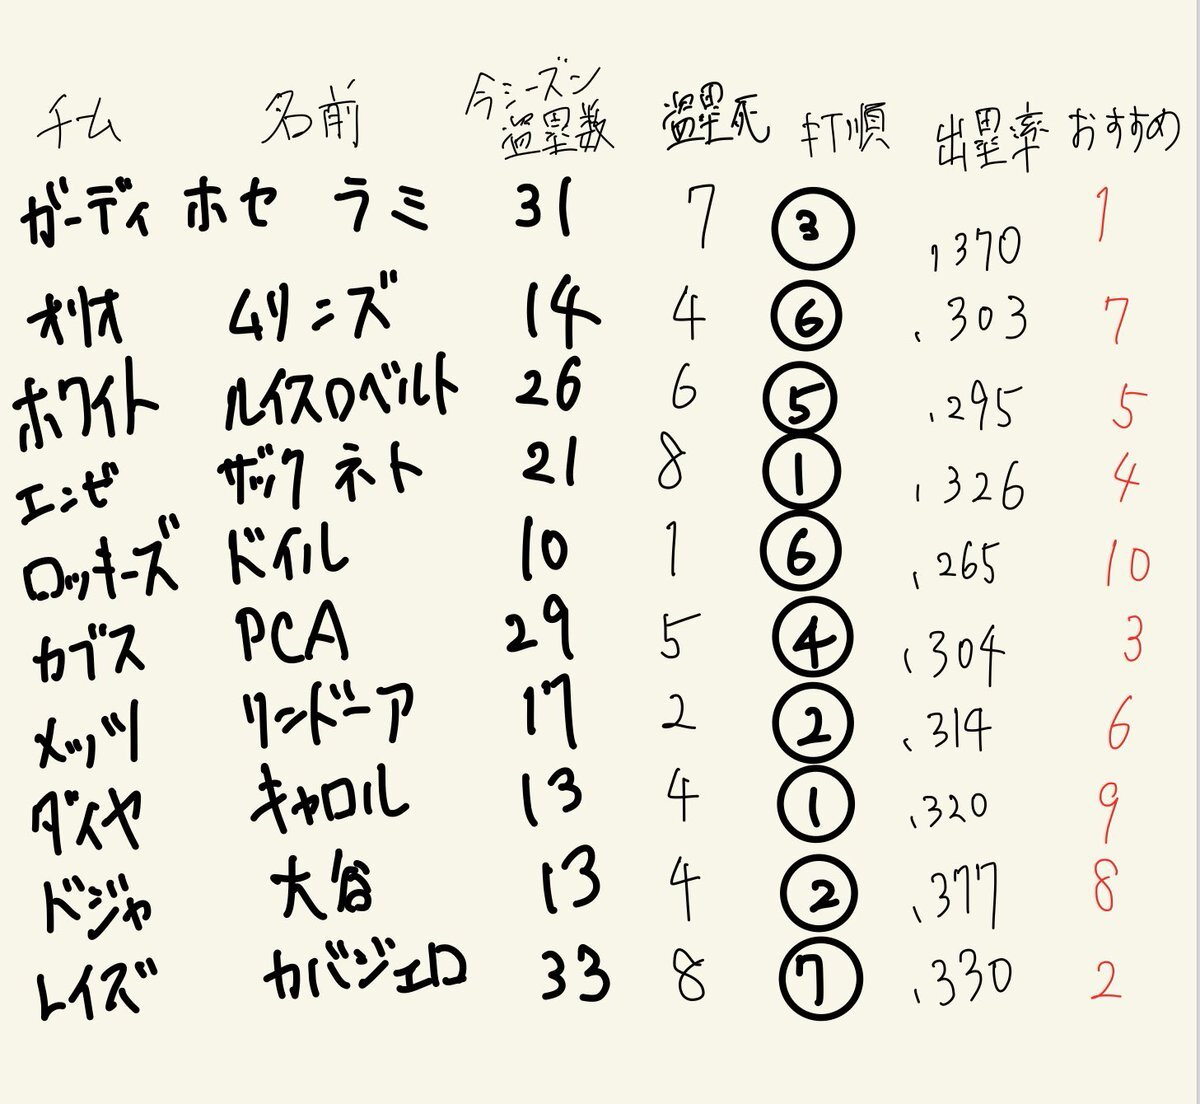 チーム 名前 今シーズン盗塁数 盗塁死 打順 出塁率 おすすめ
ガーディ ホセ ラミ 31 7 ③ .370 1
オリオ ムリンズ 14 4 ⑥ .303 7
ホワイト ルイスロベルト 26 6 ⑤ .295 5
エンゼ ザック ネト 21 8 ① .326 4
ロッキーズ ドイル 10 1 ⑥ .265 10
カブス PCA 29 5 ④ .304 3
メッツ リンドーア 17 2 ② .314 6
ダイヤ キャロル 13 4 ① .320 9
ドジャ 大谷 13 4 ② .377 8
レイズ カバジェロ 33 8 ⑦ .330 2